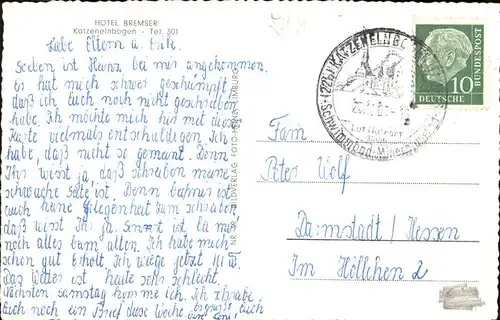 HOTEL BREMSER
Katzenelnbogen - Tel. 301
Liebe Eltern u. Erik.
Soeben ist Heinz bei mir angekommen,
er hat mich schwer geschimpft
daß ich Euch noch nicht geschrieben
habe. Ich möchte mich hir mit dieser
Karte vielmals entschuldigen. Ich
habe, daß nicht so gemeint. Denn
Ihr wißt ja, daß schreiben meine
schwache seite ist. Denn
auch keine gelegenheit zum schreiben
daß wißt Ihr ja. Sonst ist bei mir
noch alles beim alten. Ich habe mich
schon gut erholt. Ich wiege jetzt
Das Wetter ist heute sehr schlecht.
Nächsten samstag komme ich. Ich schreibe
Euch noch ein Brief diese Woche
KATZENELNBOGEN
Luftkurort
DEUTSCHE
BUNDESPOST
10
Fam
Peter Wolf
Darmstadt / Hessen
Im Höllchen 2